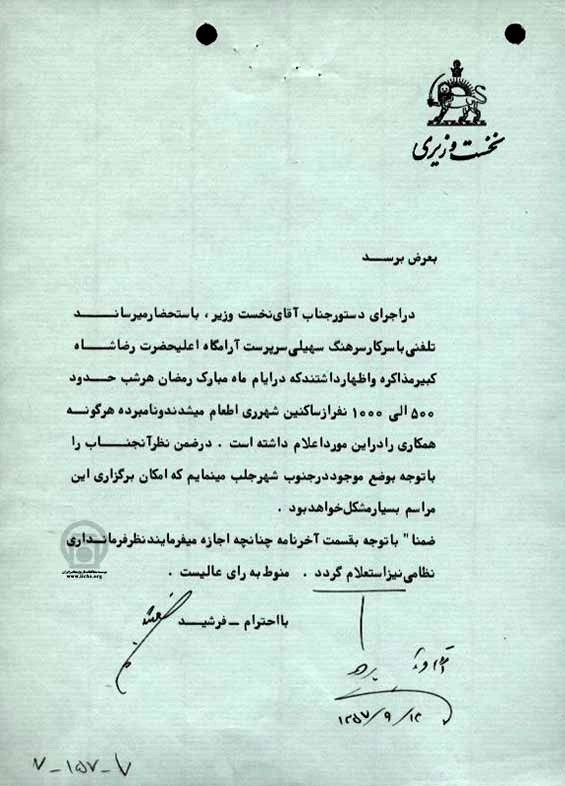 نخست وزیری
بعرض برسد
دراجرای دستورجناب آقای نخست وزیر ، باستحضارمیرساند
تلفنی باسرکارسرهنگ سهیلی سرپرست آرامگاه اعلیحضرت رضاشاه
کبیرمذاکره واظهارداشتندکه درایام ماه مبارک رمضان هرشب حدود
۵۰۰ الی ۱۰۰۰ نفرازساکنین شهرری اطعام میشدندونامبرده هرگونه
همکاری رادراین مورداعلام داشته است . درضمن نظرآنجناب را
باتوجه بوضع موجوددرجنوب شهرجلب مینمایم که امکان برگزاری این
مراسم بسیارمشکل خواهدبود .
ضمنا" باتوجه بقسمت آخرنامه چنانچه اجازه میفرمایندنظرفرمانداری
نظامی نیزاستعلام گردد . منوط به رای عالیست .
بااحترام ـ فرشید
۱۳۵۷/۹/۱۳
۷-۱۵۷-۷
www.iichs.org